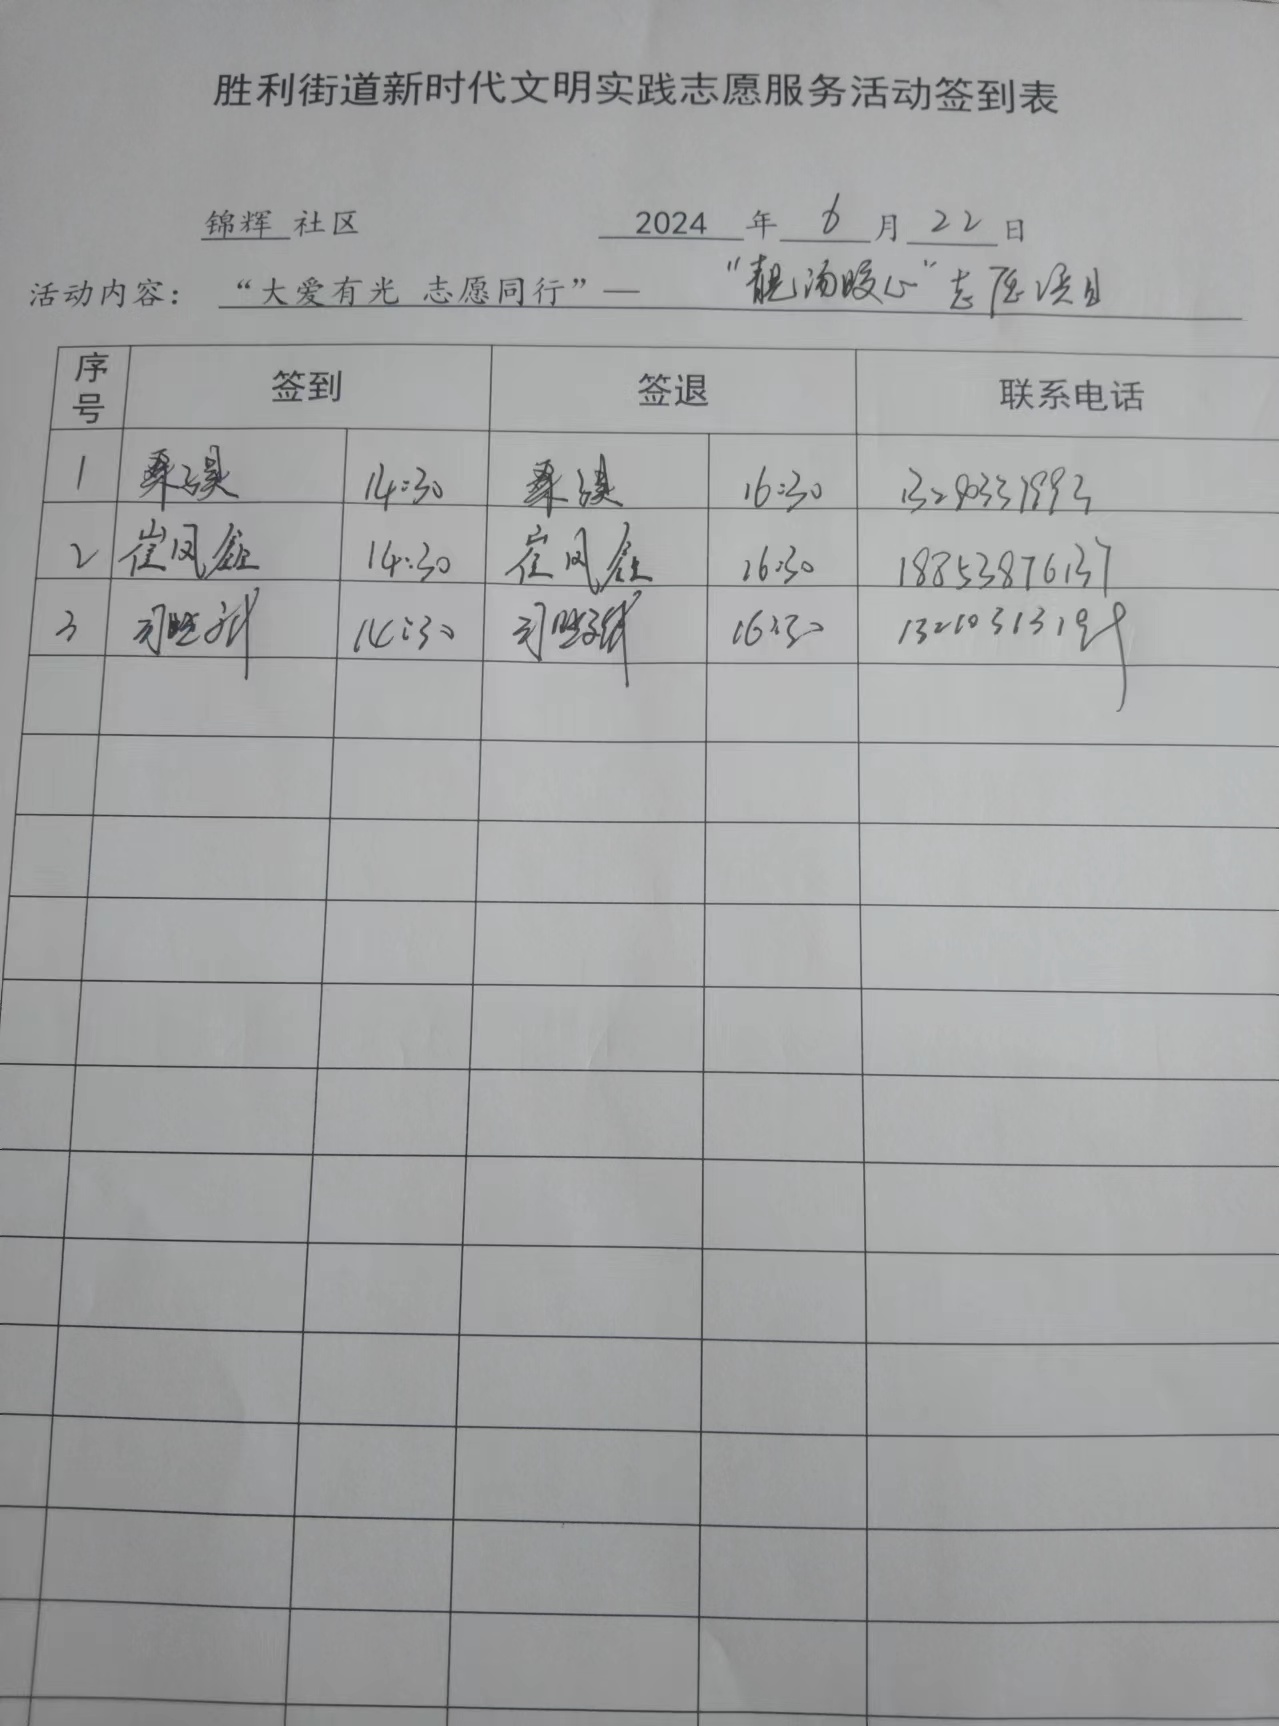 胜利街道新时代文明实践志愿服务活动签到表
锦辉 社区 2024 年 6 月 22 日
活动内容： “大爱有光 志愿同行”— “靓汤暖心”志愿项目
序号 签到 签退 联系电话
1 14:30 16:30
2 崔凤 14:30 崔凤 16:30 18853876137
3 司 14:30 司 16:30